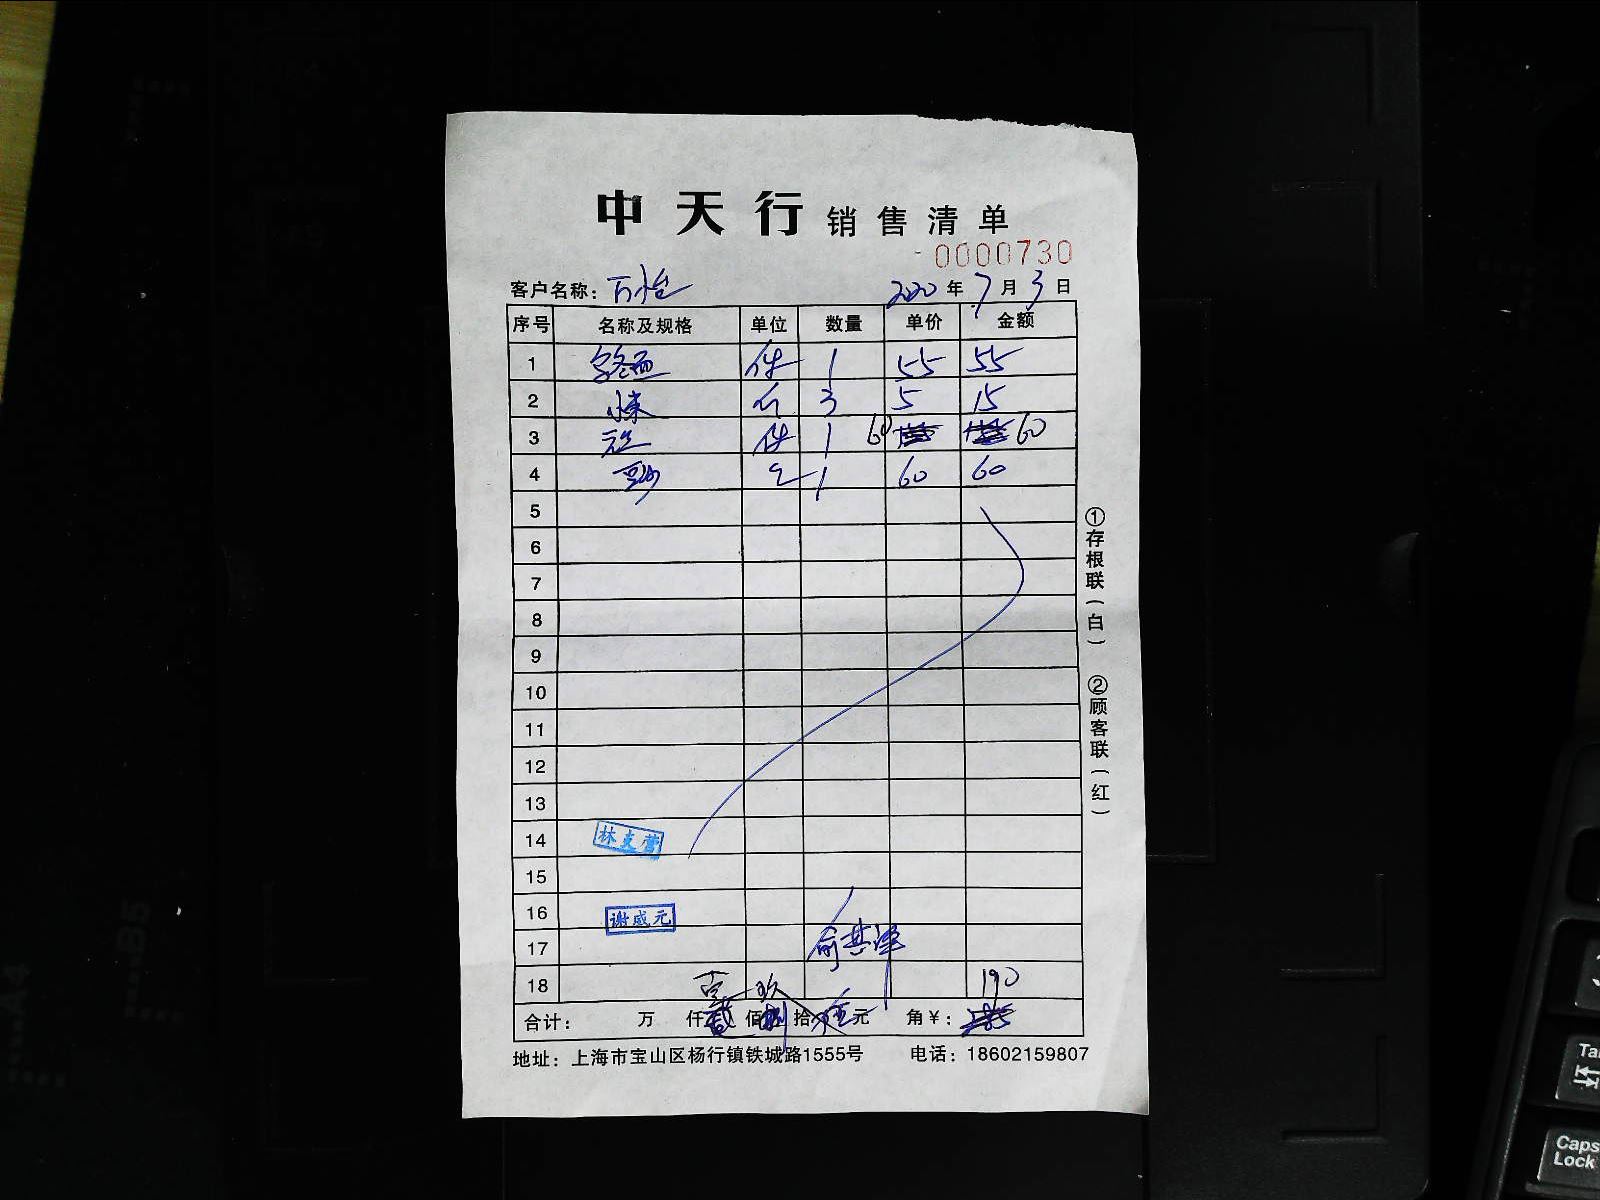 中天行 销售清单
0000730
客户名称：万怡 2020年7月3日
序号 名称及规格 单位 数量 单价 金额
1 件 1 55 55
2 3 5 15
3 件 1 60 60
4 豆沙 1 60 60
5
6
7
8
9
10
11
12
13
14 林支营
15
16 谢盛元
17
18 壹 玖 190
合计： 万 仟 佰 拾 元 角￥：
地址：上海市宝山区杨行镇铁城路1555号 电话：18602159807
①存根联（白）
②顾客联（红）
A4
B5
Caps
Lock